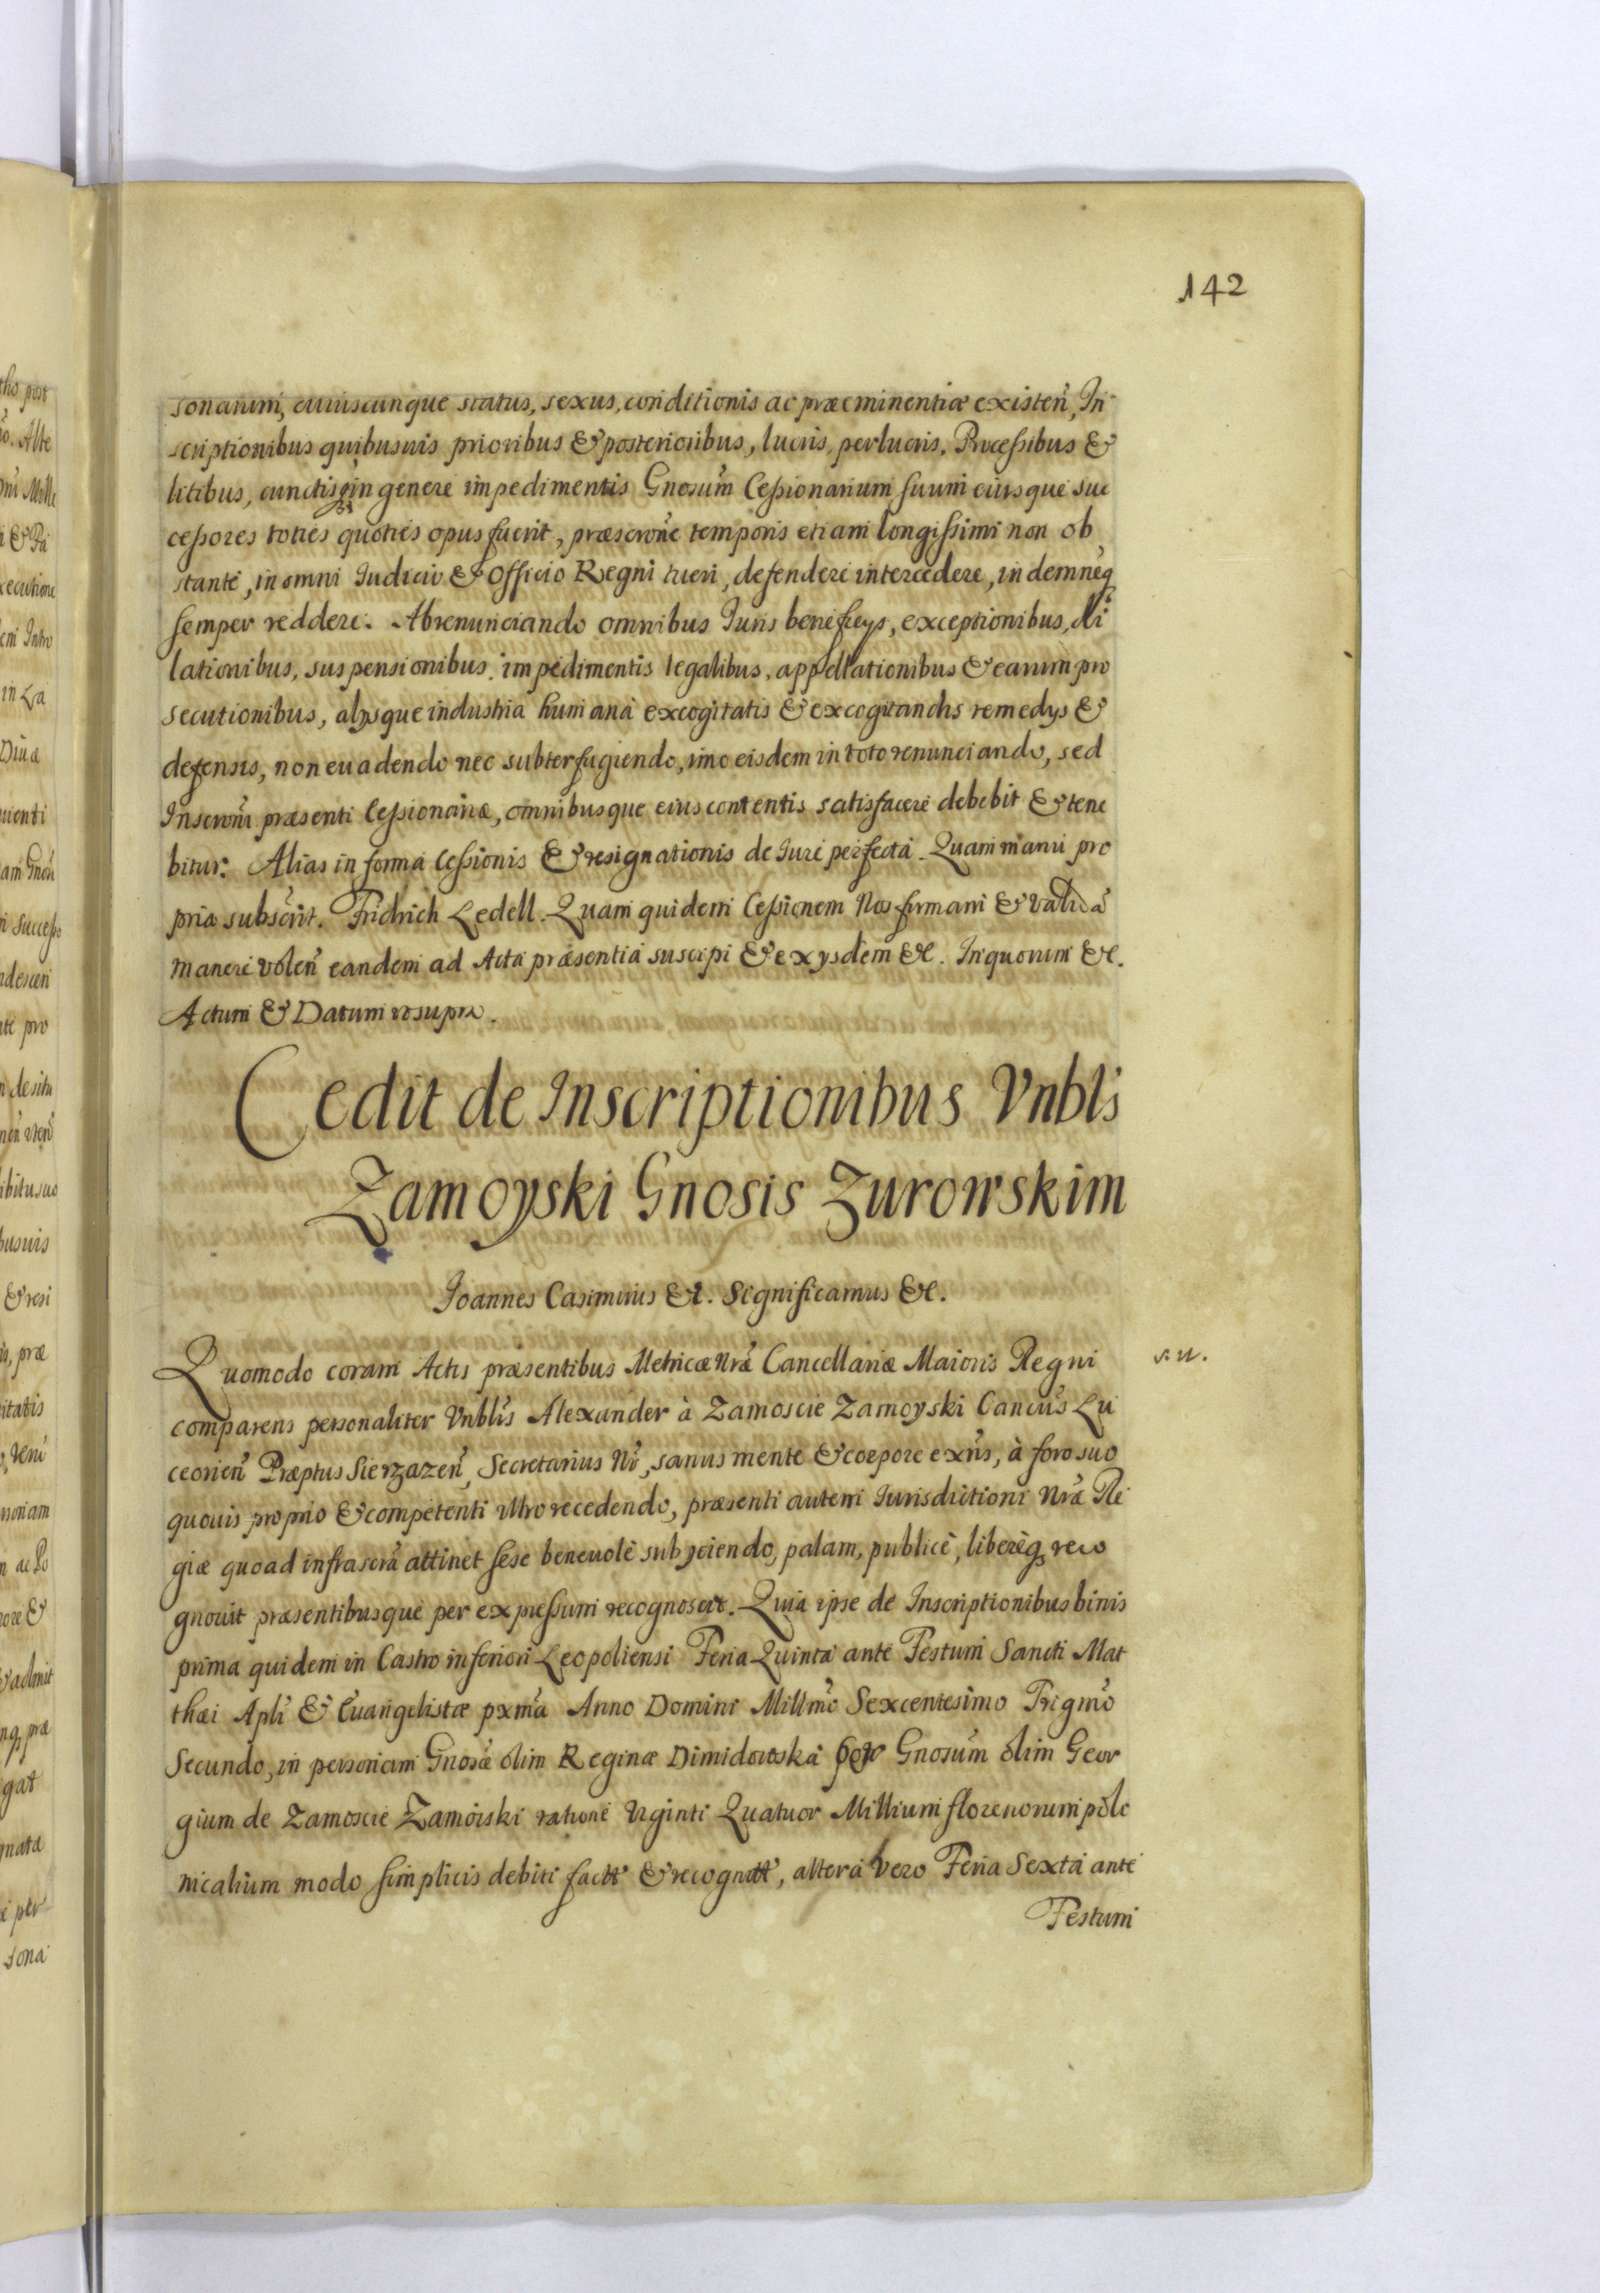 142
sonarum, cuiuscunque status, sexus, conditionis ac præeminentiæ existeñ, In
scriptionibus quibusuis prioribus & posterioribus, lucris, perlucris, Processibus &
litibus, cunctisq̃ in genere impedimentis Gnosum̃ Cessionarium suum eiusque suc
cessores toties quoties opus fuerit, præscrone temporis etiam longissimi non ob
stante, in omni Iudicio & Officio Regni tueri, defendere intercedere, indemneq̃
semper reddere. Abrenunciando omnibus Iuris beneficys, exceptionibus, di
lationibus, suspensionibus, impedimentis legalibus, appellationibus & earum pro
secutionibus, alysque industria humana excogitatis & excogitandis remedys &
defensis, non euadendo nec subterfugiendo, imo eisdem in toto renunciando, sed
Inscrom̃ præsenti Cessionariæ, omnibusque eius contentis satisfacere debebit & tene
bitur. Alias in forma Cessionis & resignationis de Iure perfecta. Quam manu pro
pria subscrit. Fridrich Ledell. Quam quidem Cessionem Nos firmam & validã
manere voleñ eandem ad Acta præsentia suscipi & ex ysdem &c. In quorum &c.
Actum & Datum ut supra.
Cedit de Inscriptionibus Vnbl̃s
Zamoyski Gnosis Zurowskim
Ioannes Casimirus &c. Significamus &c.
Quomodo coram Actis præsentibus Metricæ Nræ̃ Cancellariæ Maioris Regni
s. u.
comparens personaliter Vnbl̃is Alexander à Zamoscie Zamoyski Cancus̃ Lu
ceorieñ Præptus Sierzazeñ, Secretarius Nr̃, sanus mente & corpore exñs, à foro suo
quouis proprio & competenti ultro recedendo, præsenti autem Iurisdictioni Nræ̃ Re
giæ quoad infrascrã attinet sese beneuolè subyciendo, palam, publicè, liberèq̃ reco
gnouit præsentibusque per expressum recognoscit. Quia ipse de Inscriptionibus binis
prima quidem in Castro inferiori Leopoliensi Feria Quinta ante Festum Sancti Mat
thæi Apli̇̃ & Euangelistæ pxmã Anno Domini Millmõ Sexcentesimo Trigmõ
Secundo, in personam Gnosæ̃ olim Reginæ Dimidowska per Gnosum̃ olim Geor
gium de Zamoscie Zamoiski ratione Viginti Quatuor Millium florenorum polo
nicalium modo simplicis debiti fact̃ & recognit̃, altera vero Feria Sexta ante
Festum